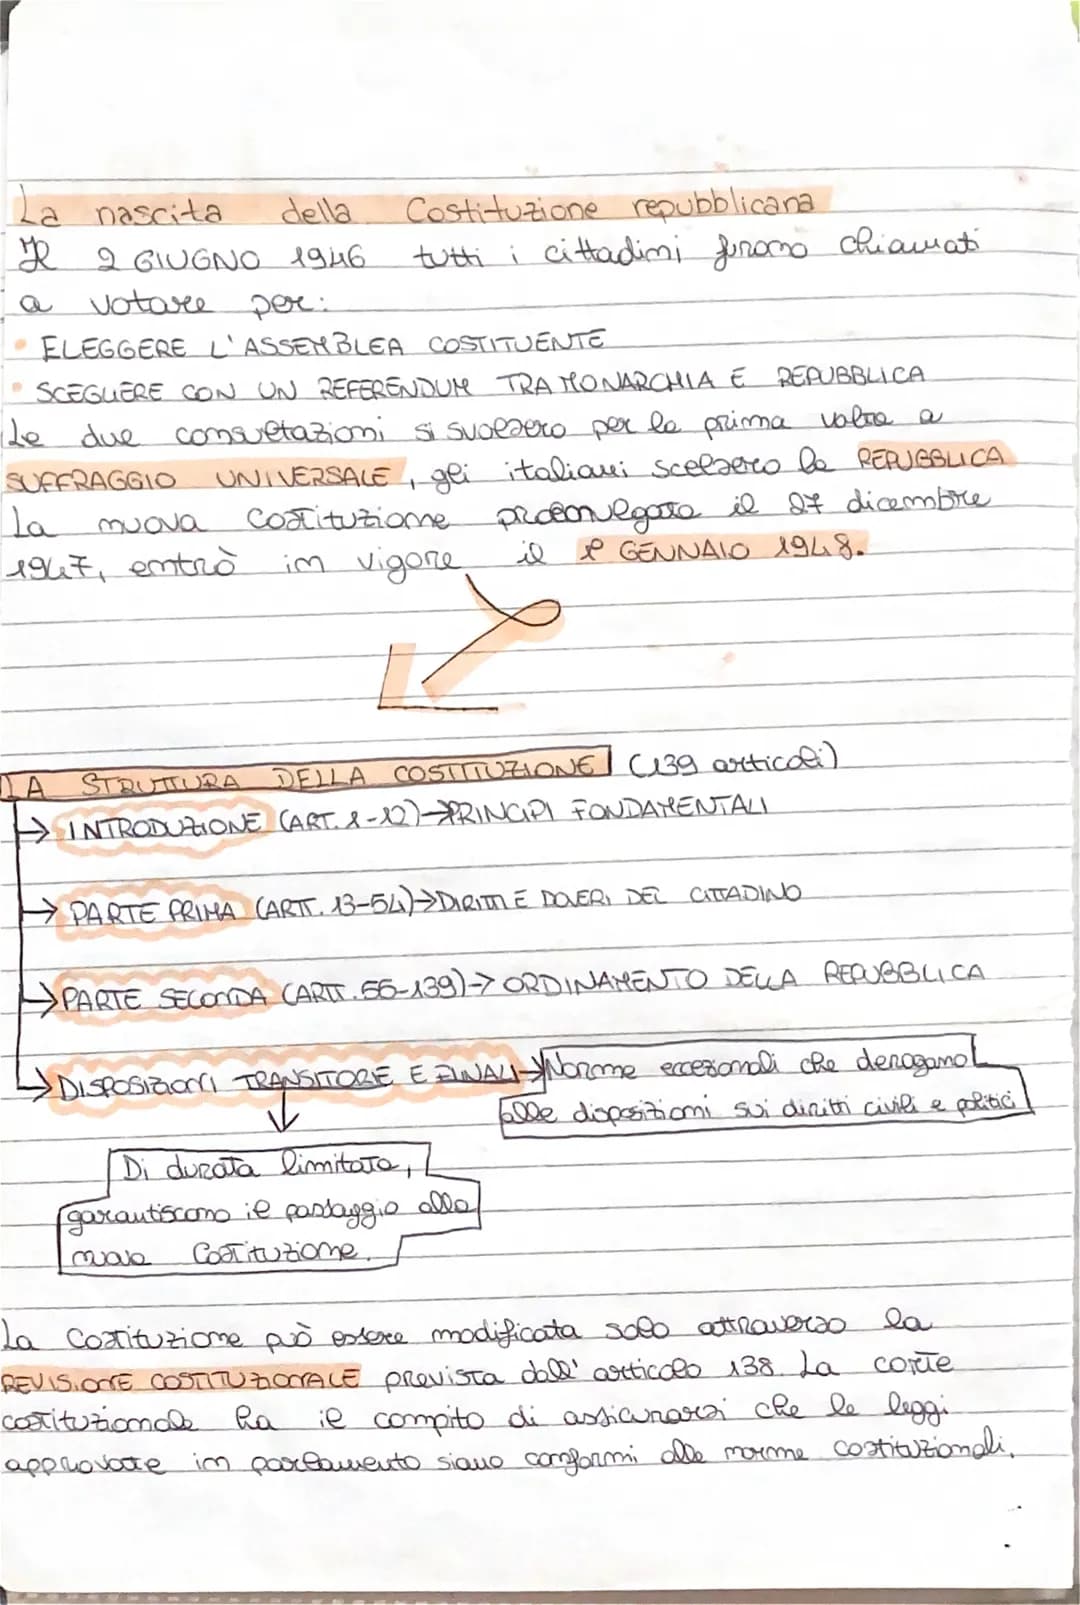 La nascita della Costituzione repubblicana
Il 2 GIUGNO 1946 tutti i cittadini furono chiamati
a votare per:
• ELEGGERE L'ASSEMBLEA COSTITUENTE
• SCEGLIERE CON UN REFERENDUM TRA MONARCHIA E REPUBBLICA
Le due consultazioni si svolsero per la prima volta a
SUFFRAGGIO UNIVERSALE, gli italiani scelsero la REPUBBLICA
La nuova Costituzione promulgata il 27 dicembre
1947, entrò in vigore il 1° GENNAIO 1948.
LA STRUTTURA DELLA COSTITUZIONE (139 articoli)
→ INTRODUZIONE (ART. 1-12)→PRINCIPI FONDAMENTALI
→ PARTE PRIMA (ARTT. 13-54)→DIRITTI E DOVERI DEL CITTADINO
→ PARTE SECONDA (ARTT. 55-139)→ ORDINAMENTO DELLA REPUBBLICA
→ DISPOSIZIONI TRANSITORE E FINALI→Norme eccezionali che derogano
alle disposizioni sui diritti civili e politici
↓
Di durata limitata,
garantiscono il passaggio alla
nuova Costituzione.
La Costituzione può essere modificata solo attraverso la
REVISIONE COSTITUZIONALE prevista dall'articolo 138. La corte
costituzionale ha il compito di assicurarsi che le leggi
approvate in parlamento siano conformi alle norme costituzionali.